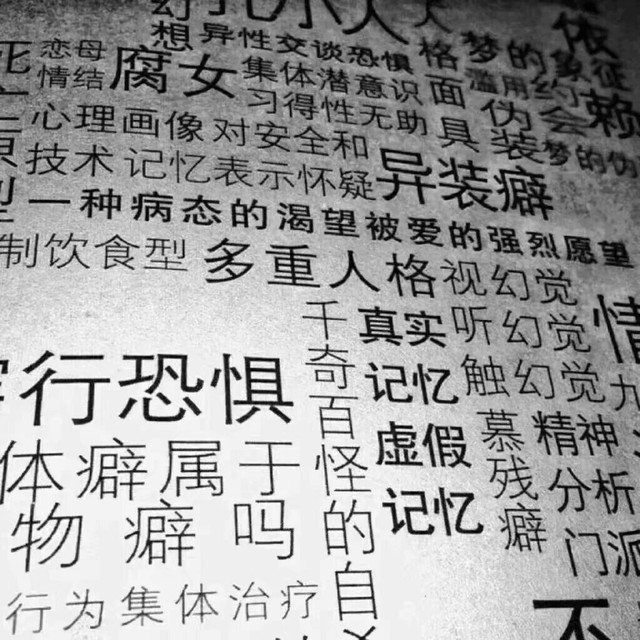 幻
小人
想 异性交谈恐惧
格梦的象征
恋母
情结
腐女
集体潜意识
滥用约
面
具
伪会
装
依
赖
习得性无助
心理画像 对安全和
梦的伪
技术 记忆表示怀疑
异装癖
一种病态的渴望被爱的强烈愿望
制饮食型
多重人格
视幻觉
听幻觉
触幻觉
情
千
奇
百
怪
的
自
真实
记忆
虚假
记忆
行恐惧
慕
残
癖
九
精神
分析
门派
体癖属于
物癖吗
行为集体治疗